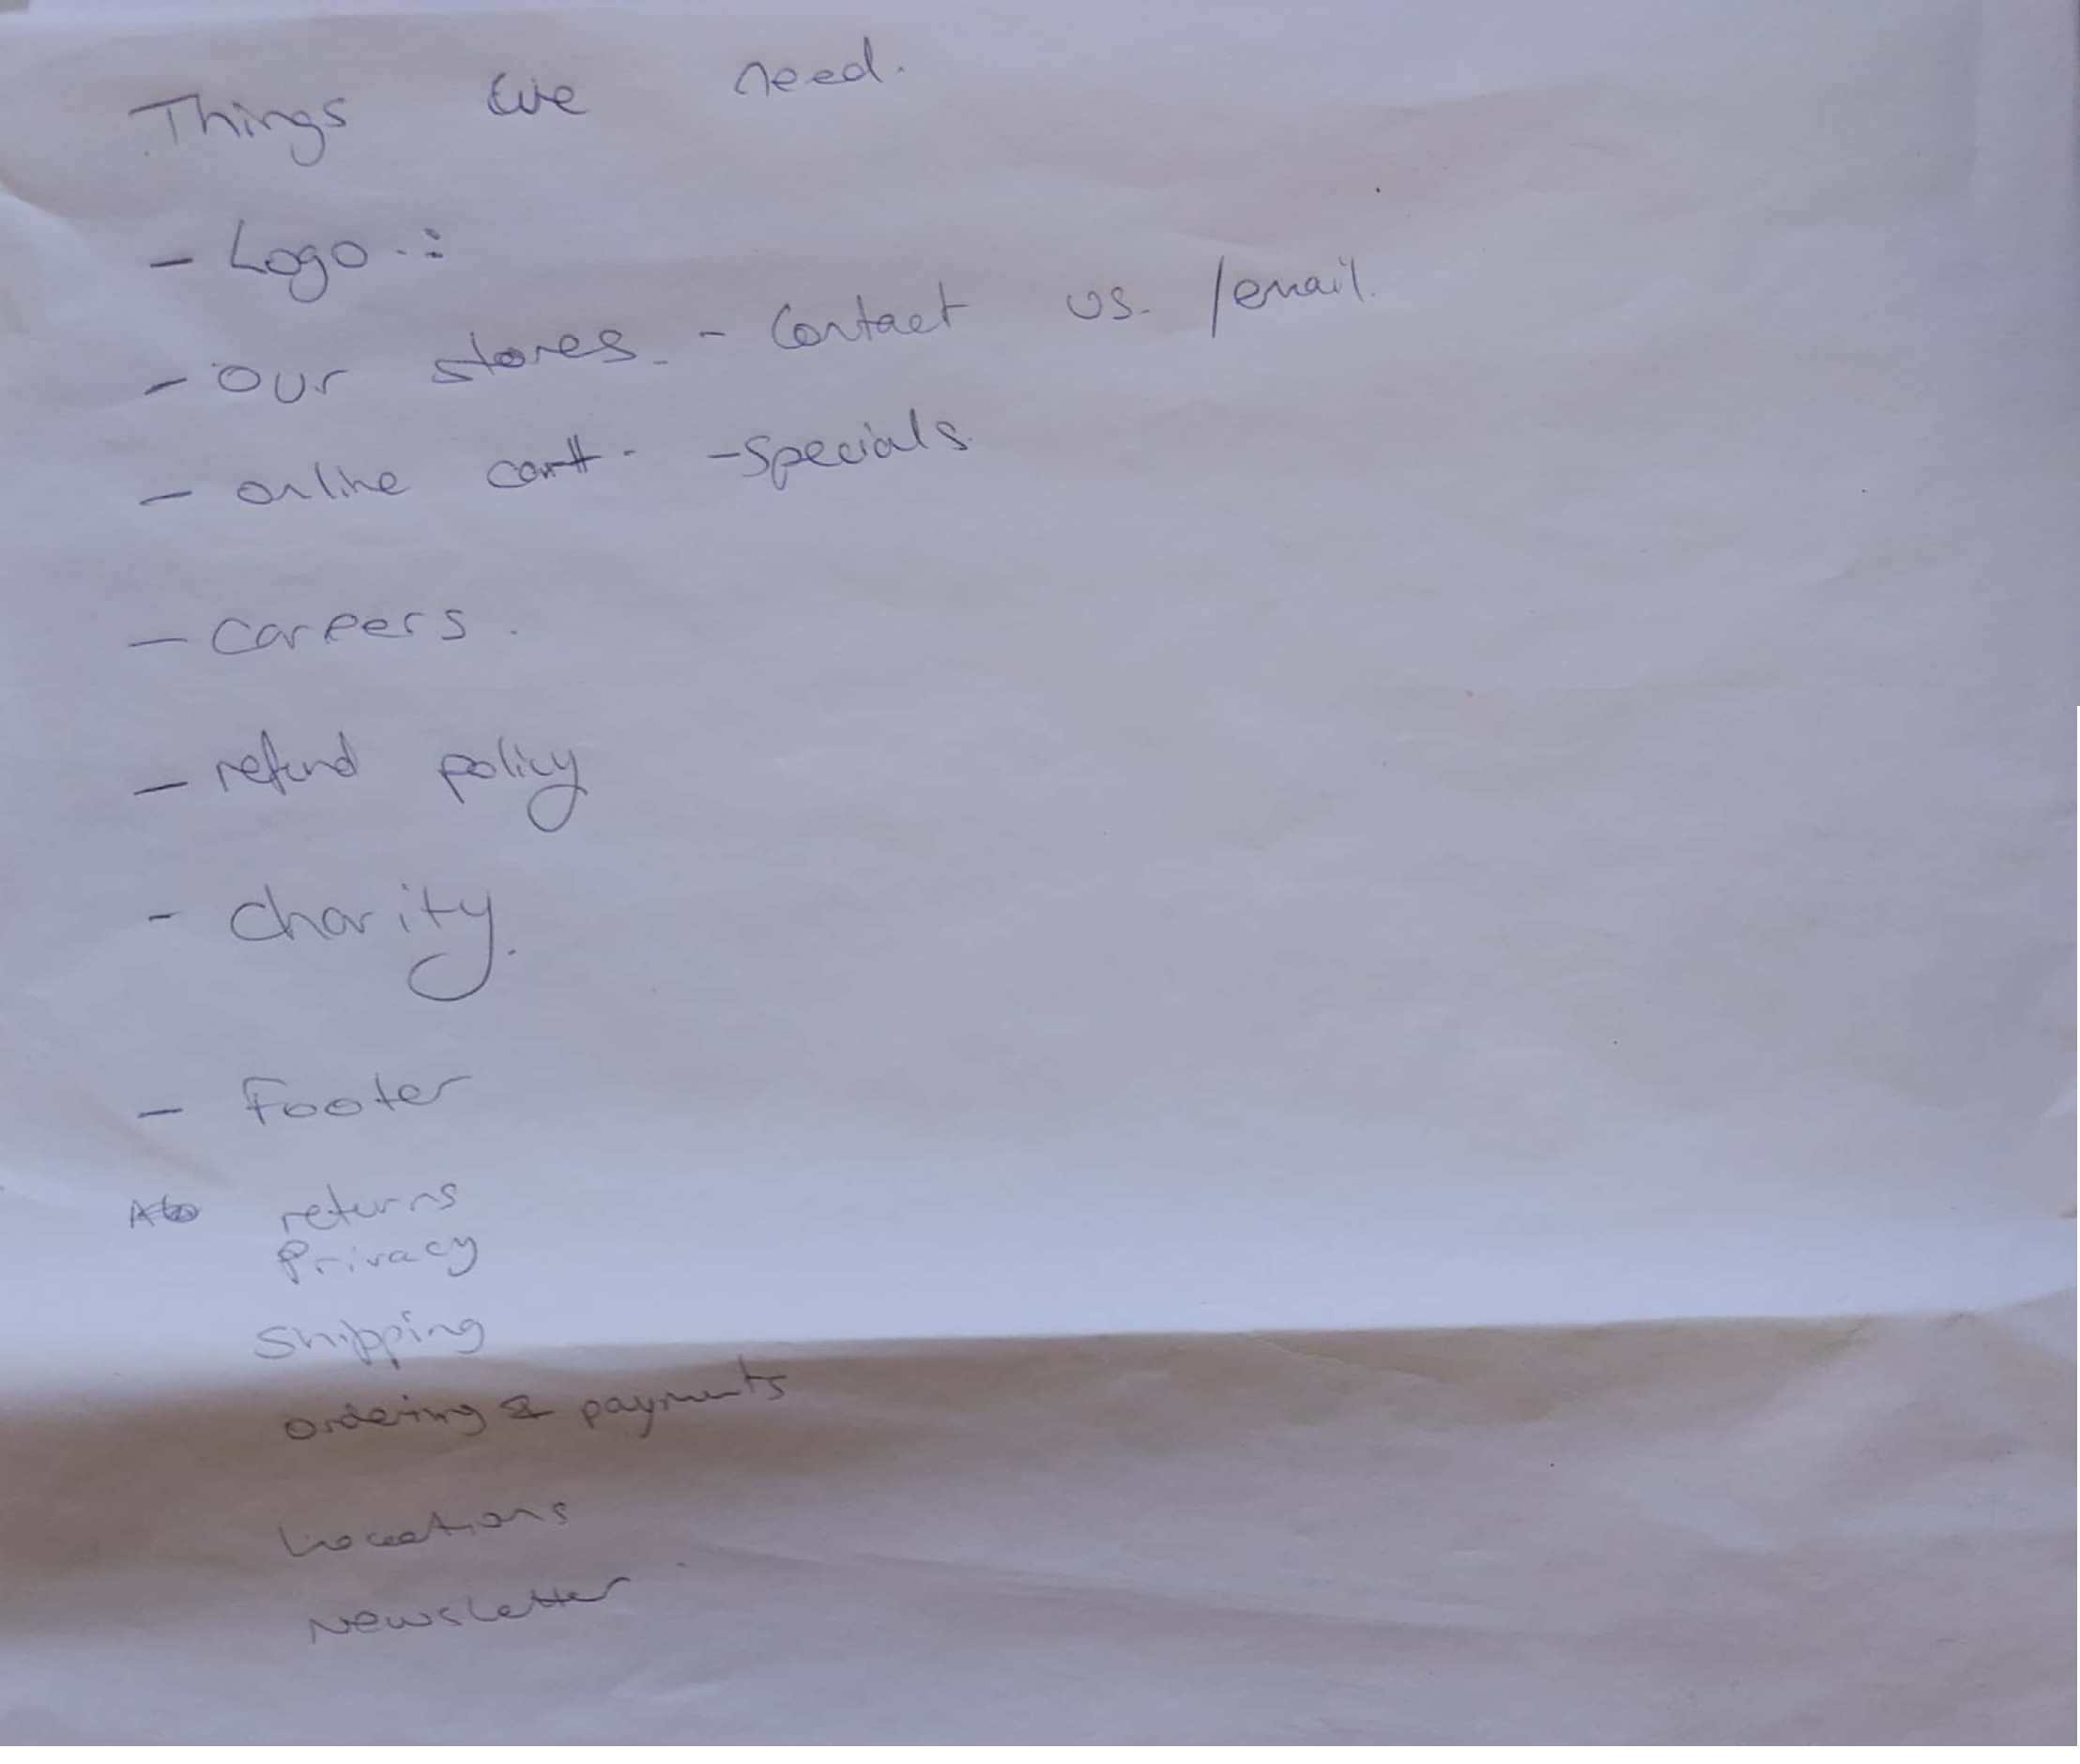 Things we need.
- Logo.:
- Our stores. - Contact us. /email.
- online cart. - Specials.
- Careers.
- refund policy
- Charity.
- Footer
returns
Privacy
Shipping
Ordering & payments
Locations
Newsletter